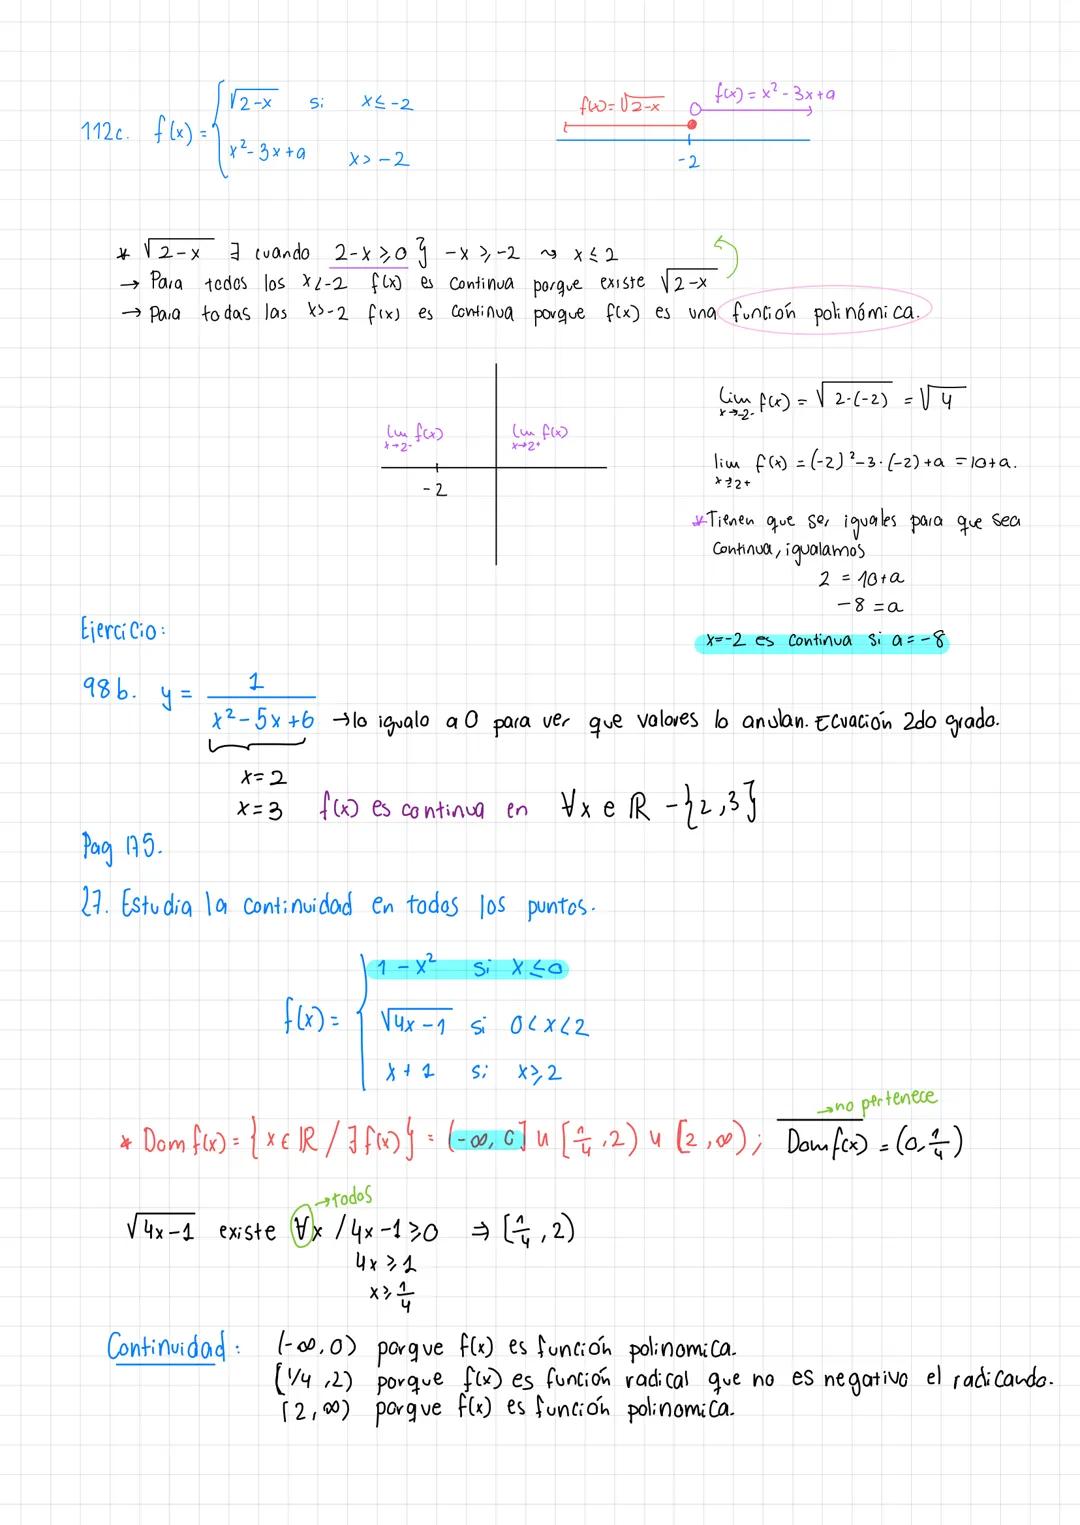 112c. f(x) = { √2-x si x ≤ -2
x² - 3x + a x > -2
f(x) = √2-x f(x) = x² - 3x + a
-2
* √2-x ∃ cuando 2-x ≥ 0 } -x ≥ -2 ⤳ x ≤ 2
→ Para todos los x<-2 f(x) es continua porque existe √2-x
→ Para todas las x>-2 f(x) es continua porque f(x) es una función polinómica.
lim f(x) x→2- lim f(x) x→2+
-2
lim f(x) = √2-(-2) = √4
x→-2-
lim f(x) = (-2)² -3·(-2)+a = 10+a.
x→2+
*Tienen que ser iguales para que sea
continua, igualamos
2 = 10+a
-8 = a
x=-2 es continua si a = -8
Ejercicio:
98b. y = 1 / x² - 5x + 6 → lo igualo a 0 para ver que valores lo anulan. Ecuación 2do grado.
x = 2
x = 3 f(x) es continua en ∀x e ℝ - {2,3}
Pag 175.
27. Estudia la continuidad en todos los puntos.
f(x) = { 1 - x² si x ≤ 0
√4x-1 si 0<x<2
x + 1 si x ≥ 2
→no pertenece
* Dom f(x) = {x ∈ ℝ / ∃ f(x)} = (-∞, 0] u [1/4, 2) u [2, ∞); Dom f(x) = (0, 1/4)
→todos
√4x-1 existe ∀x / 4x-1 ≥ 0 ⇒ [1/4, 2)
4x ≥ 1
x ≥ 1/4
Continuidad: (-∞, 0) porque f(x) es función polinomica.
[1/4, 2) porque f(x) es función radical que no es negativo el radicando.
[2, ∞) porque f(x) es función polinomica.